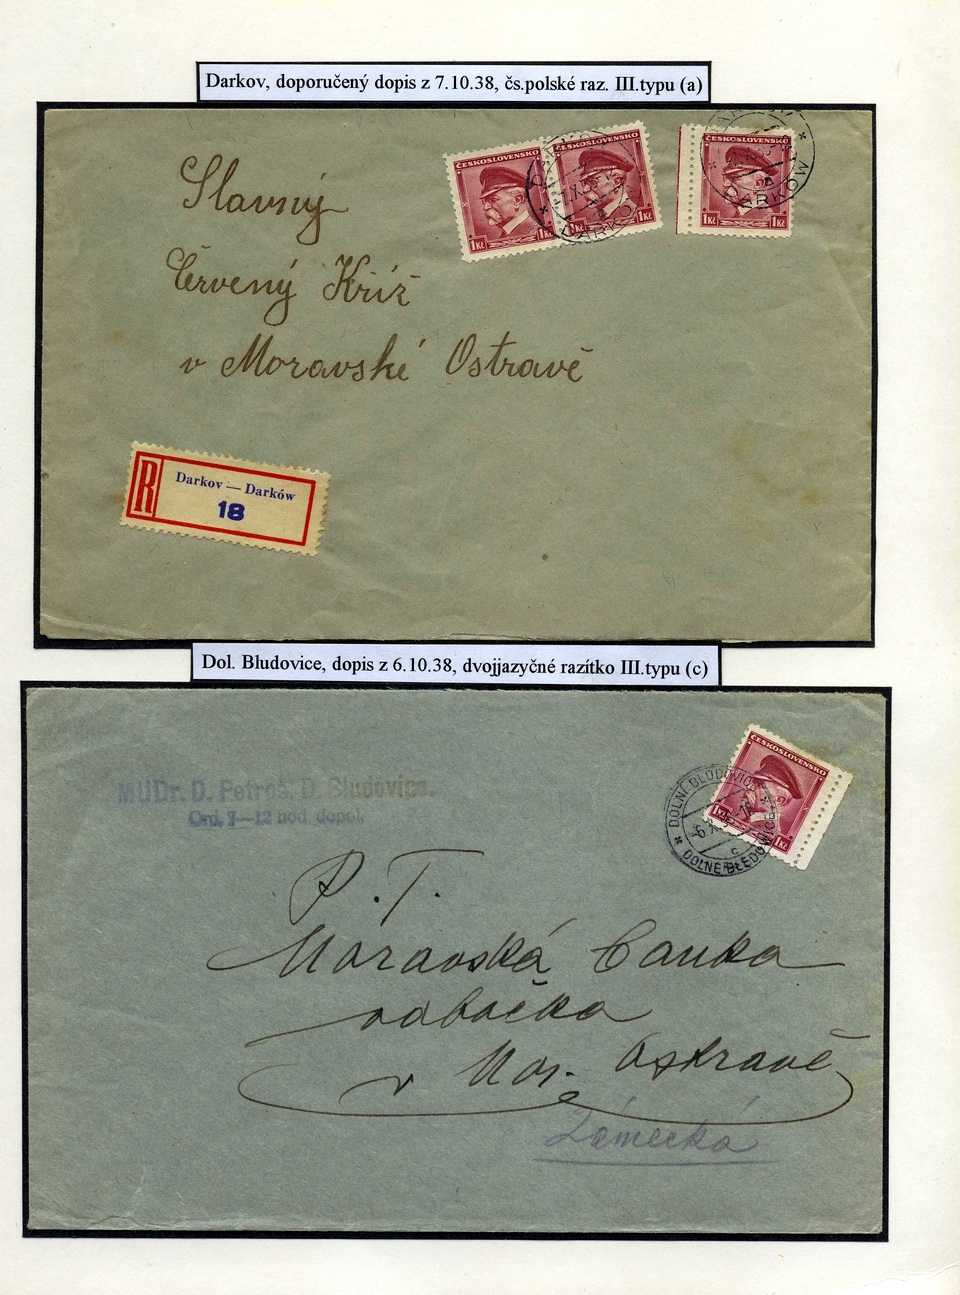 Darkov, doporučený dopis z 7.10.38, čs.polské raz. III.typu (a)
ČESKOSLOVENSKO
1Kč 1Kč
ČESKOSLOVENSKO
1Kč 1Kč
1Kč 1Kč
DARKÓW
Slavný
Červený Kříž
v Moravské Ostravě
R
Darkov — Darków
18
Dol. Bludovice, dopis z 6.10.38, dvojjazyčné razítko III.typu (c)
ČESKOSLOVENSKO
1Kč 1Kč
DOLNÍ BLUDOVICE
-6.X.
c
DOLNE BŁĘDOWICE
MUDr. D. Petroš, D. Bludovice.
Ord. 7—12 hod. dopol.
P. T.
Moravská banka
odbočka
v Mor. Ostravě
Zámecká